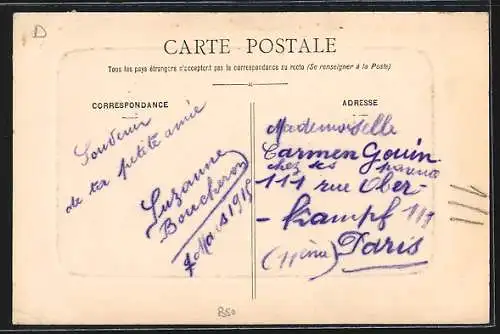 D
CARTE POSTALE
Tous les pays étrangers n'acceptent pas la correspondance au recto (Se renseigner à la Poste)
CORRESPONDANCE
Souvenir
de ta petite amie
Suzanne
Boucheron
7 Mars 1915
ADRESSE
Mademoiselle
Carmen Gouin
chez ses parents
111 rue Ober-
- Kampf 111
(11ème) Paris
B50